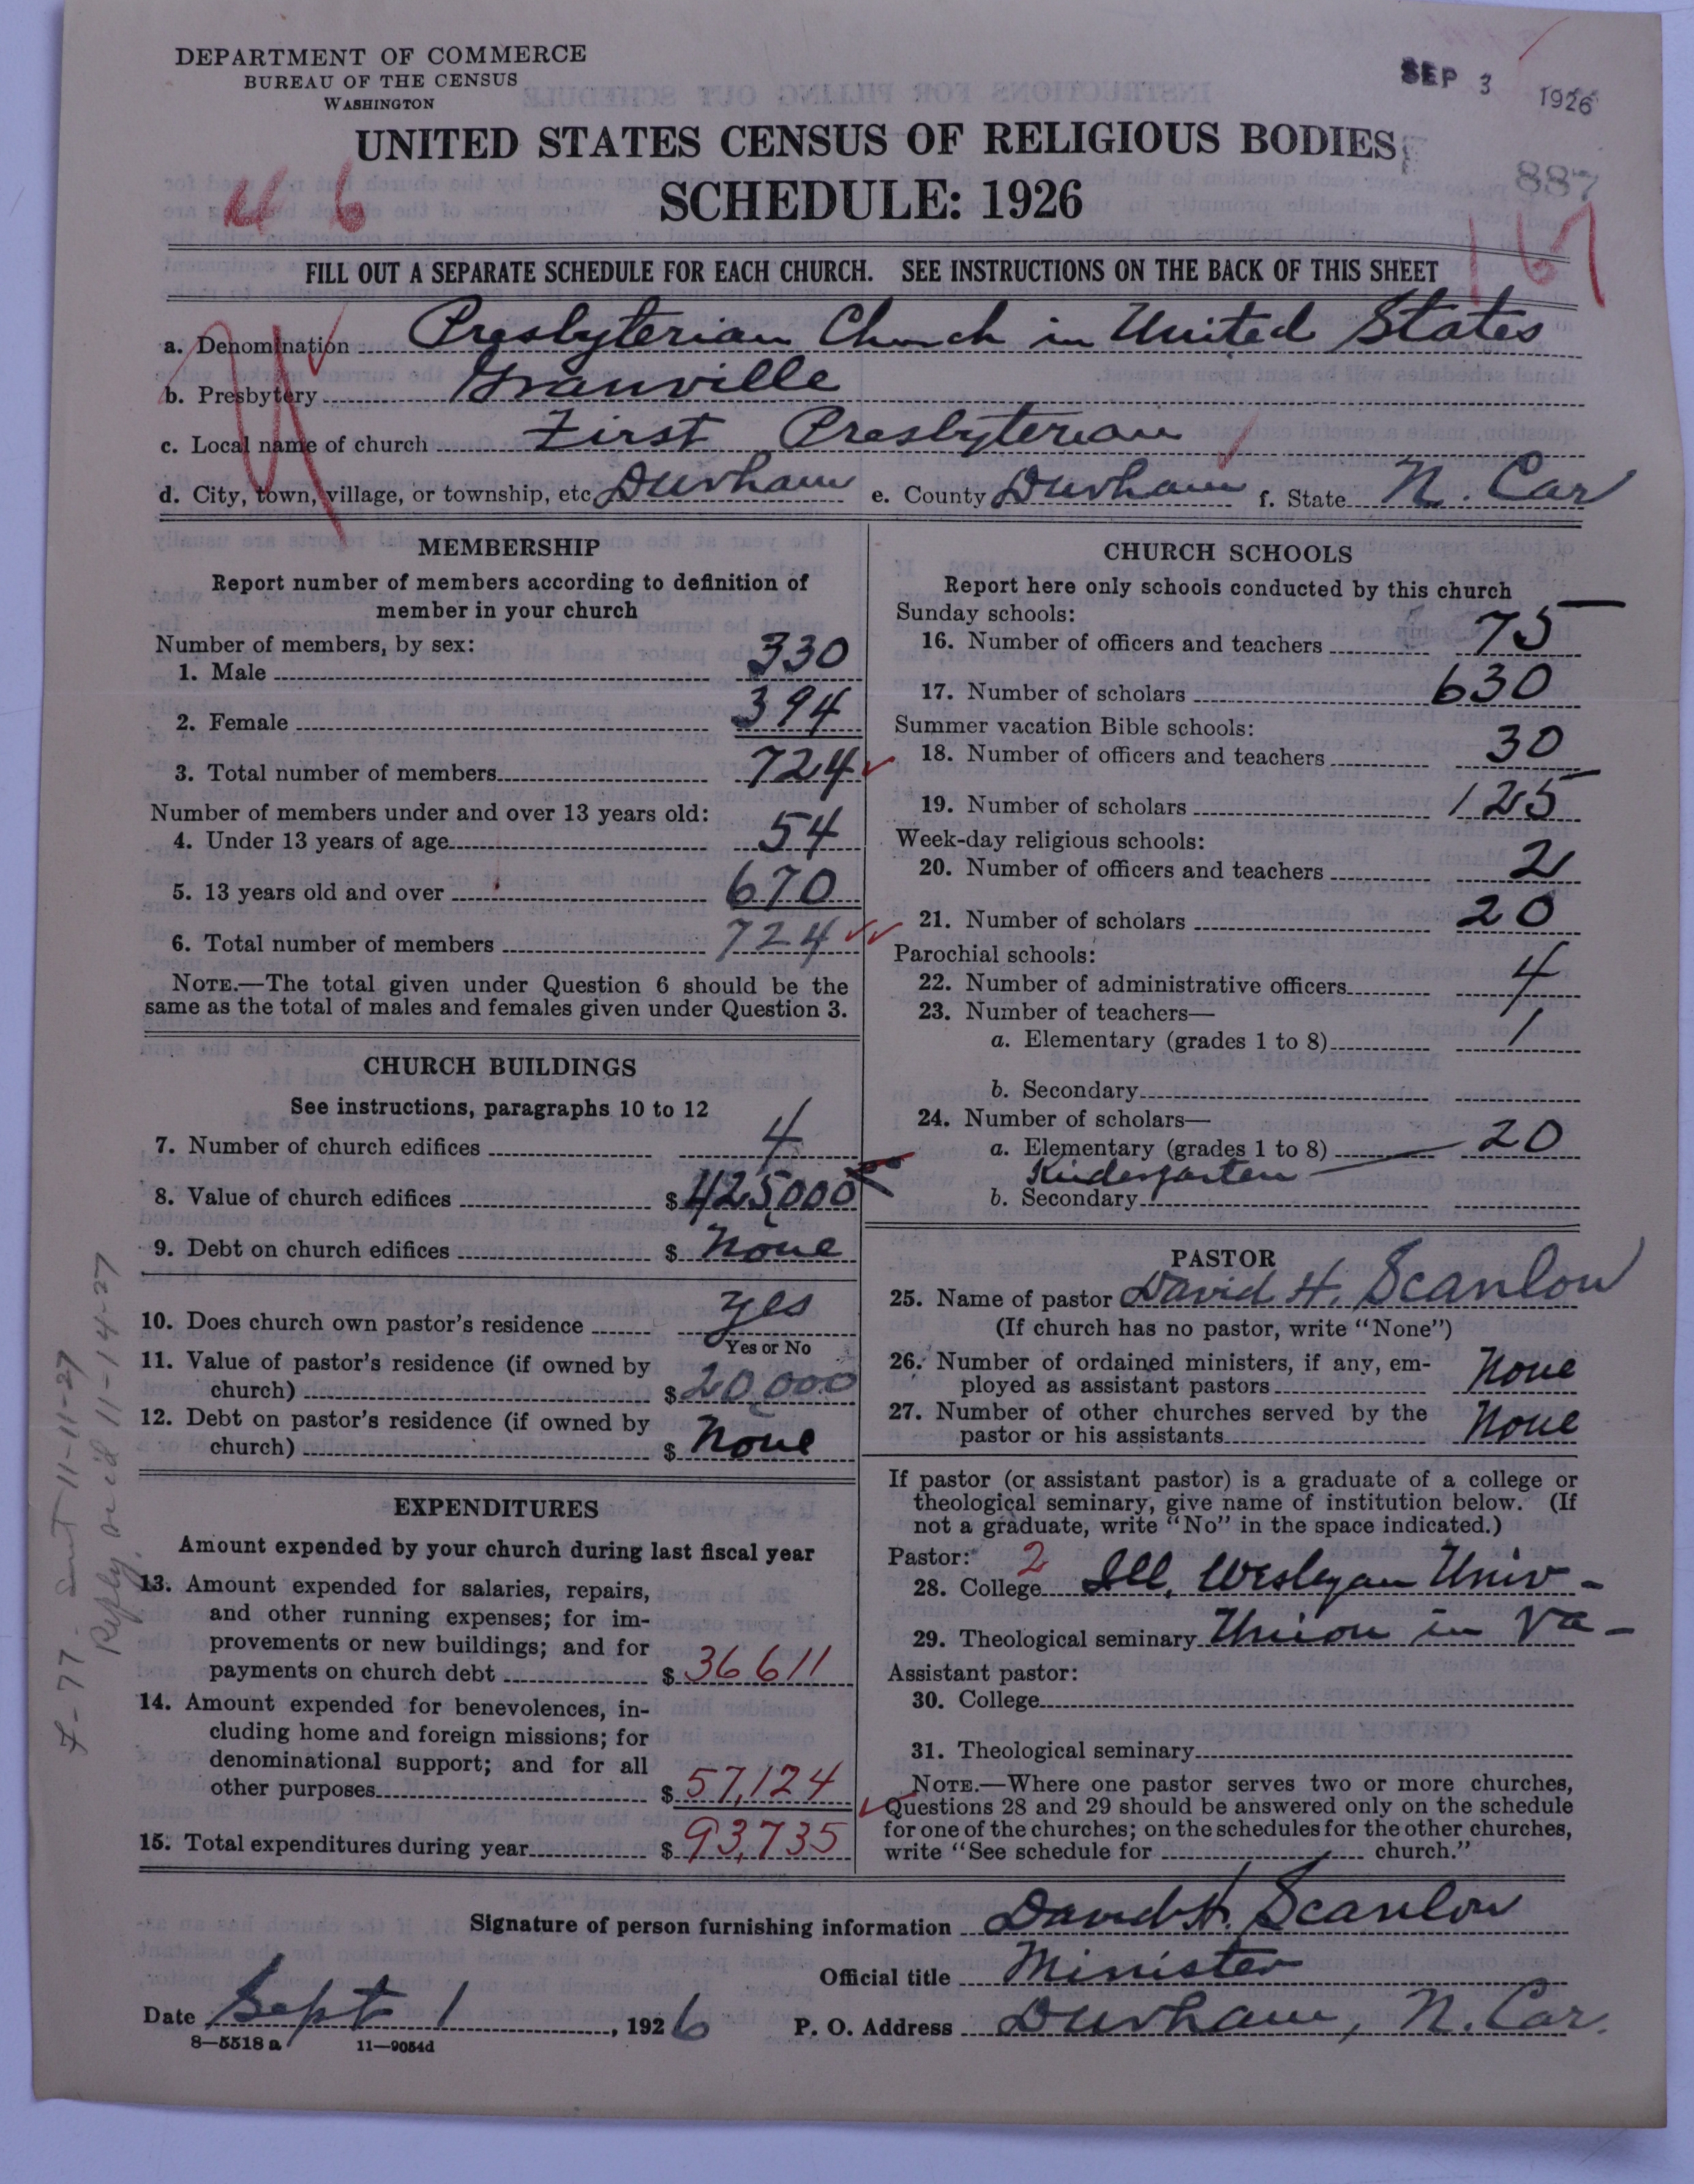 DEPARTMENT OF COMMERCE
BUREAU OF THE CENSUS
WASHINGTON
SEP 3 1926
UNITED STATES CENSUS OF RELIGIOUS BODIES
887
SCHEDULE: 1926
46
167
FILL OUT A SEPARATE SCHEDULE FOR EACH CHURCH. SEE INSTRUCTIONS ON THE BACK OF THIS SHEET
a. Denomination Presbyterian Church in United States
b. Presbytery Granville
c. Local name of church First Presbyterian
d. City, town, village, or township, etc Durham e. County Durham f. State N. Car
MEMBERSHIP
Report number of members according to definition of
member in your church
Number of members, by sex:
1. Male 330
2. Female 394
3. Total number of members 724
Number of members under and over 13 years old:
4. Under 13 years of age 54
5. 13 years old and over 670
6. Total number of members 724
NOTE.—The total given under Question 6 should be the
same as the total of males and females given under Question 3.
CHURCH BUILDINGS
See instructions, paragraphs 10 to 12
7. Number of church edifices 4
8. Value of church edifices $ 425000
9. Debt on church edifices $ None
10. Does church own pastor's residence yes
Yes or No
11. Value of pastor's residence (if owned by
church) $ 20,000
12. Debt on pastor's residence (if owned by
church) $ None
EXPENDITURES
Amount expended by your church during last fiscal year
13. Amount expended for salaries, repairs,
and other running expenses; for im-
provements or new buildings; and for
payments on church debt $ 36611
14. Amount expended for benevolences, in-
cluding home and foreign missions; for
denominational support; and for all
other purposes $ 57,124
15. Total expenditures during year $ 93,735
CHURCH SCHOOLS
Report here only schools conducted by this church
Sunday schools:
16. Number of officers and teachers 75
17. Number of scholars 630
Summer vacation Bible schools:
18. Number of officers and teachers 30
19. Number of scholars 125
Week-day religious schools:
20. Number of officers and teachers 2
21. Number of scholars 20
Parochial schools:
22. Number of administrative officers 4
23. Number of teachers—
a. Elementary (grades 1 to 8) 1
b. Secondary
24. Number of scholars—
a. Elementary (grades 1 to 8) 20
Kindergarten
b. Secondary
PASTOR
25. Name of pastor David H. Scanlon
(If church has no pastor, write "None")
26. Number of ordained ministers, if any, em-
ployed as assistant pastors None
27. Number of other churches served by the
pastor or his assistants None
If pastor (or assistant pastor) is a graduate of a college or
theological seminary, give name of institution below. (If
not a graduate, write "No" in the space indicated.)
Pastor: 2
28. College Ill. Wesleyan Univ-
29. Theological seminary Union in Va-
Assistant pastor:
30. College
31. Theological seminary
NOTE.—Where one pastor serves two or more churches,
Questions 28 and 29 should be answered only on the schedule
for one of the churches; on the schedules for the other churches,
write "See schedule for church."
Signature of person furnishing information David H. Scanlon
Official title Minister
Date Sept 1, 1926 P. O. Address Durham, N. Car.
8—5518 a 11—9054d
7-77- Sent 11-11-27
Reply rec'd 11-14-27